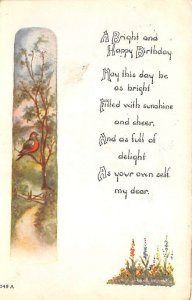 A Bright and
Happy Birthday.
May this day be
as bright
Filled with sunshine
and cheer,
And as full of
delight
As your own self
my dear.
049 A